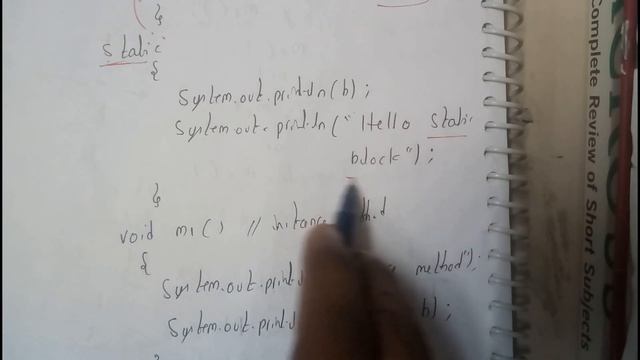 }
static
{
System.out.println(b);
System.out.println("Hello static
block");
}
void m1() // instance
{
System.out.print method");
System.out.print b);
}
Complete Review of Short Subjects